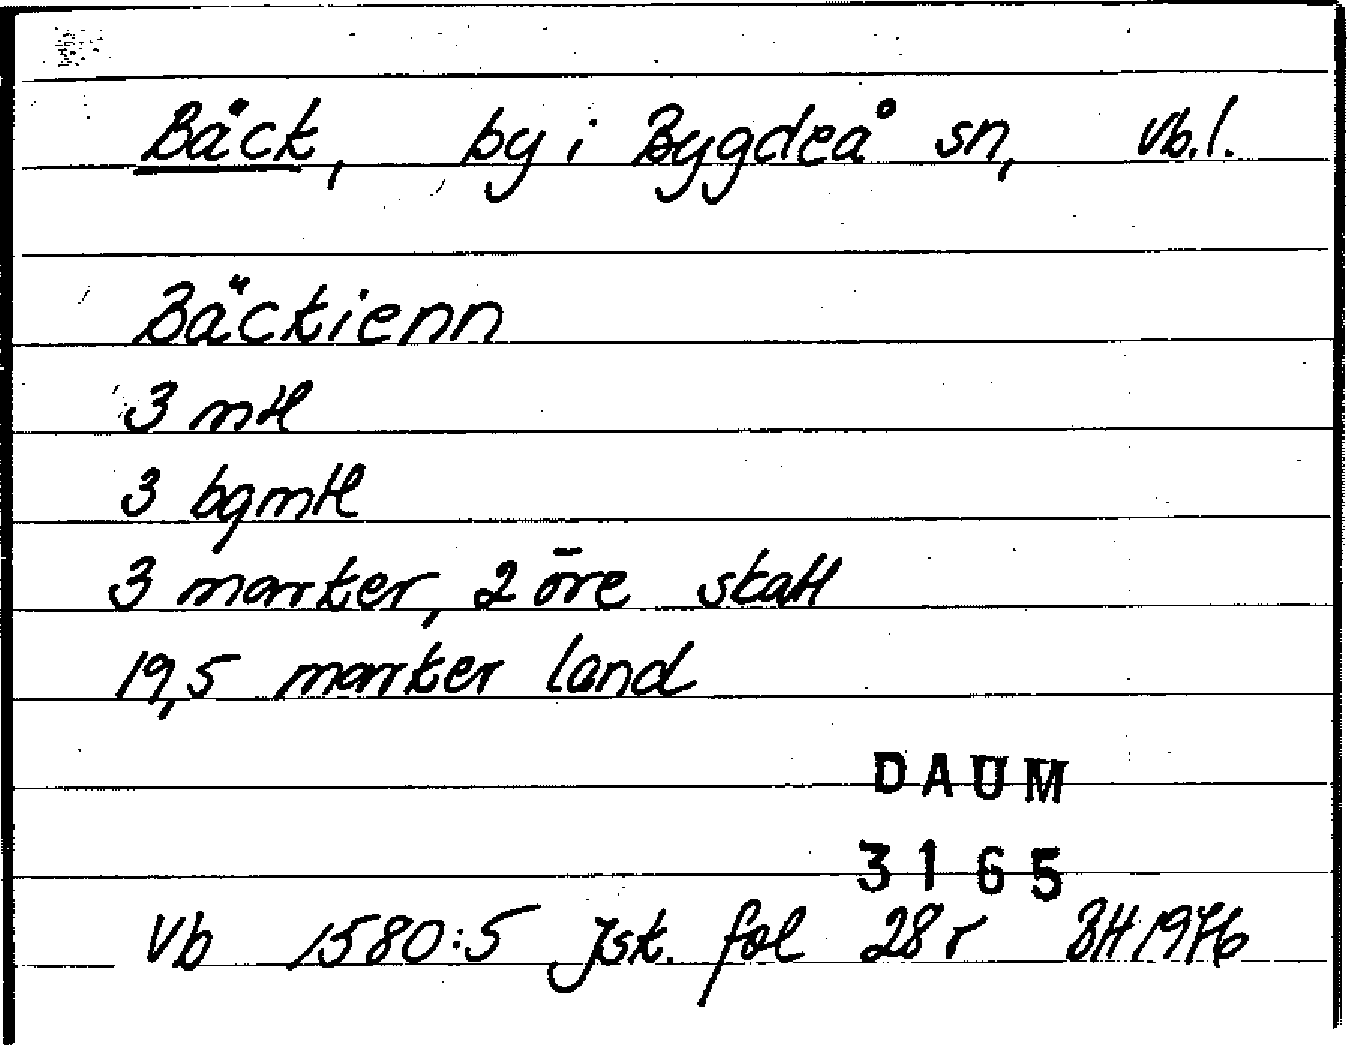 Bäck, by i Bygdeå sn, Vb.l.
Bäckienn
3 mtl
3 bgmtl
3 marker, 2 öre skatt
19,5 marker land
DAUM
3165
Vb 1580:5 Jsk. fol 28 r BH 1976